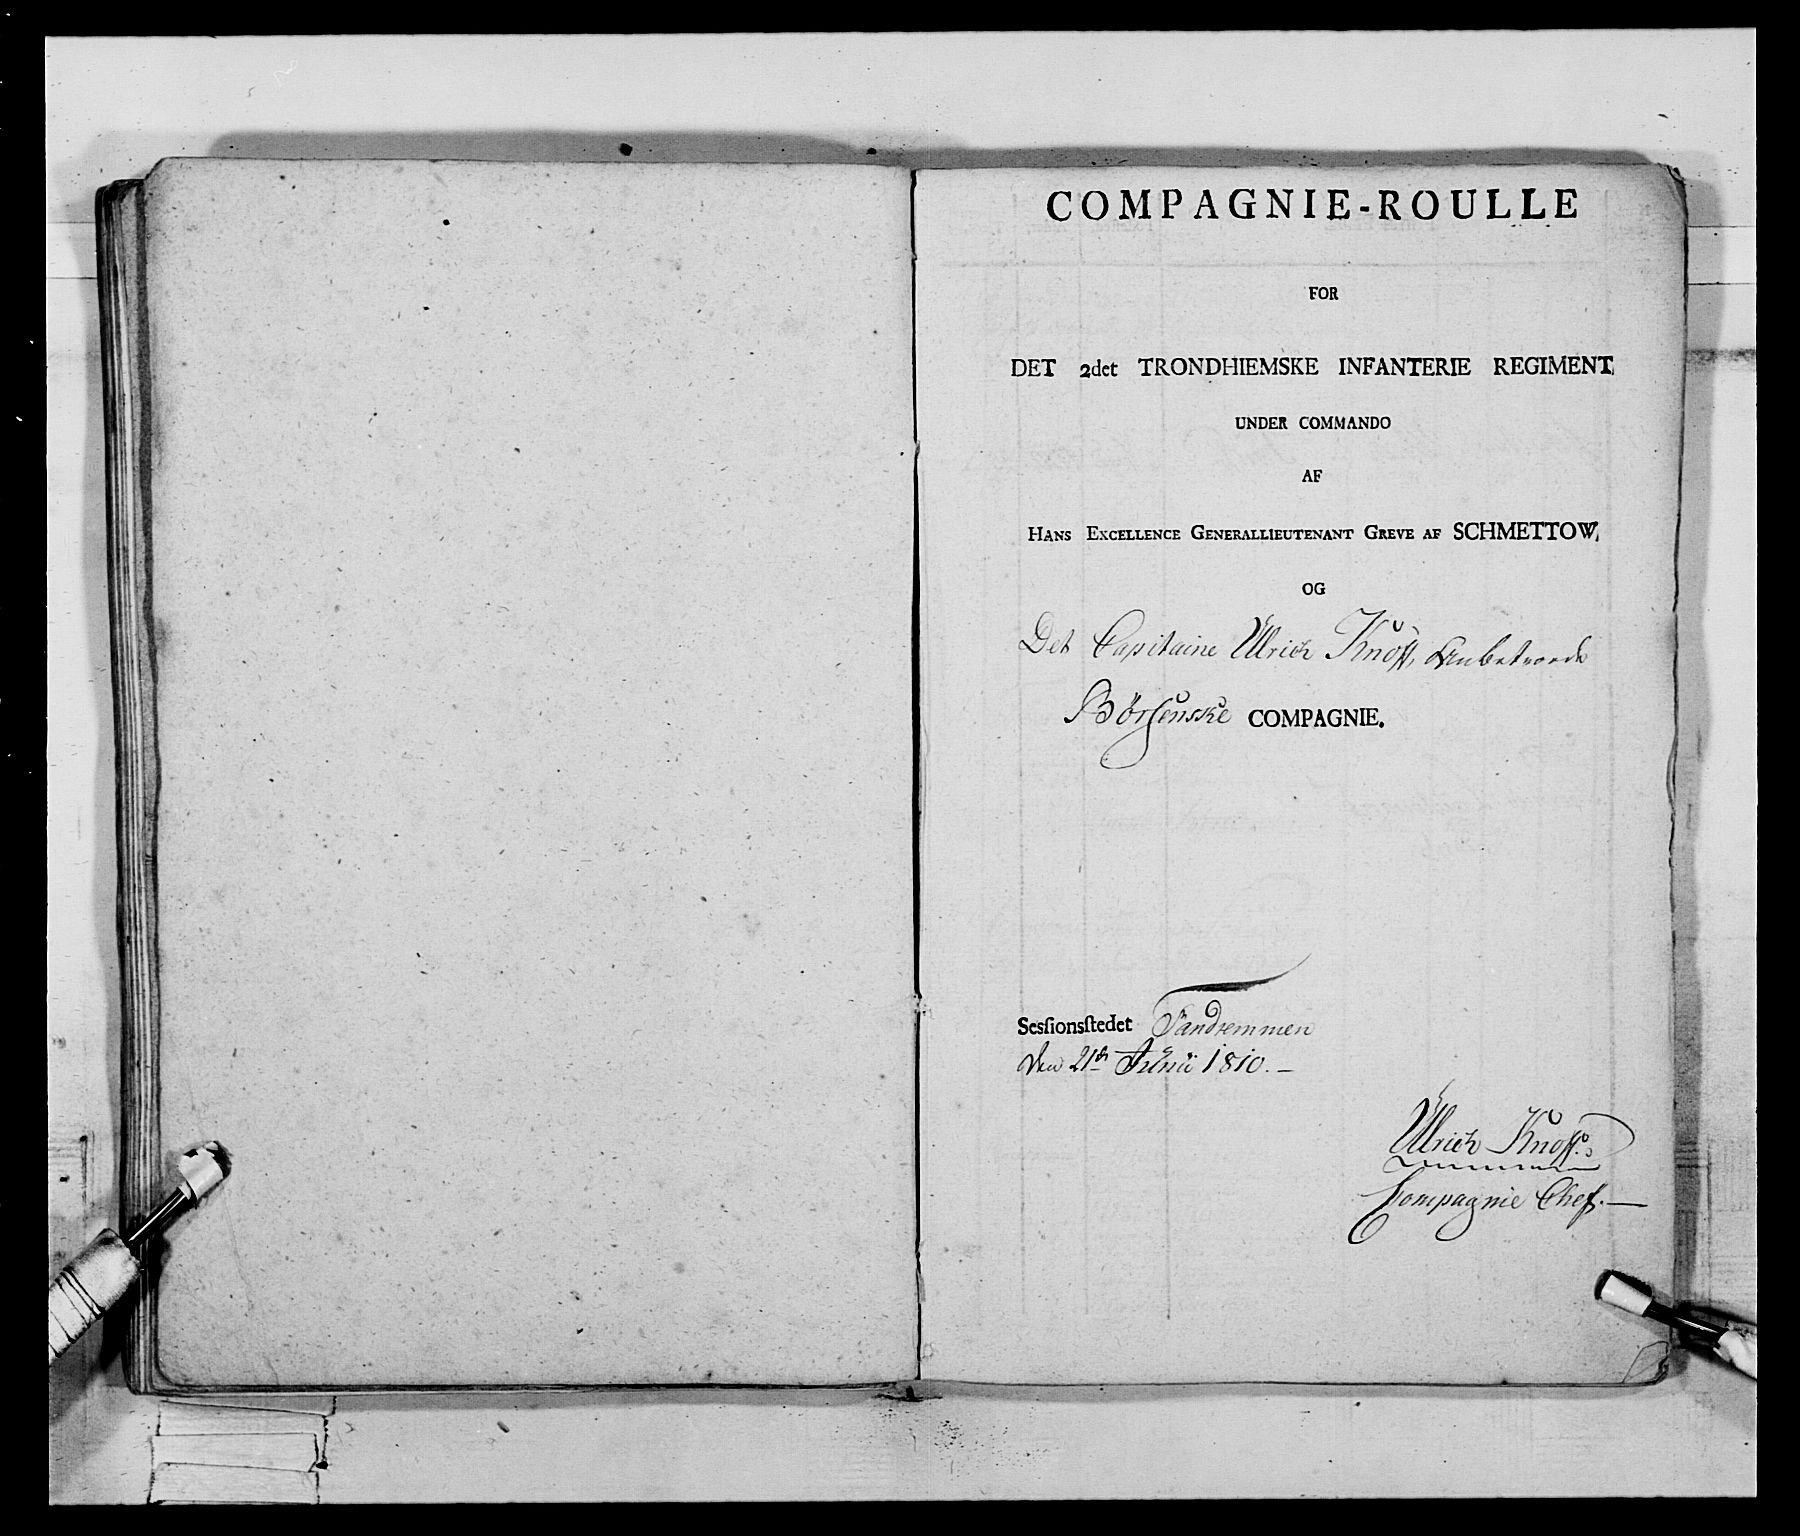 COMPAGNIE-ROULLE
FOR
DET 2det TRONDHIEMSKE INFANTERIE REGIMENT,
UNDER COMMANDO
AF
HANS EXCELLENCE GENERALLIEUTENANT GREVE AF SCHMETTOW,
OG
Det Capitaine Ulrich Knoff, Anbetroede
Børsenske COMPAGNIE.
Sesſionsſtedet
den 21de Junii 1810. —
Ulrich Knoff.
Compagnie Chef. —